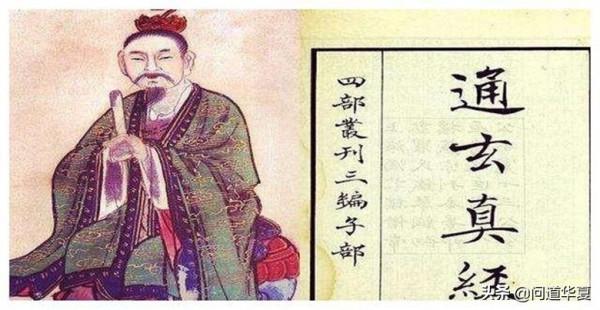 通玄真經
四部叢刊三編子部
头条 @问道华夏